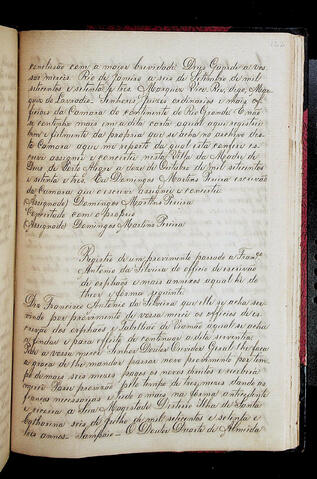 conclusão com a maior brevidade. Deus Guarde a vos
sas mercês. Rio de Janeiro a seis de Setembro de mil
setecentos e setenta e tres. Marquez Vice-Rei, digo, Mar
quez de Lavradio. Senhores Juizes ordinarios e mais of
ficiaes da Camara do continente do Rio Grande. E não
se continha mais em a dita carta aqual aqui registei
bem e fielmente da propria que se acha no archivo des
ta Camara aque me reporto da qual esta conferi es
crevi assignei e concertei nesta Villa da Madre de
Deus de Porto Alegre a doze de Outubro de mil setecentos
e setenta e tres. Eu Domingos Martins Pereira escrivão
da Camara que o escrevi assignei e concertei
(Assignado) Domingos Martins Pereira
Concertado com o proprio
(Assignado) Domingos Martins Pereira
Registro de um provimento passado a Franco
Antonio da Silveira do officio de escrivão
de orphãos e mais annexos aqual he do
theor e forma seguinte
Diz Francisco Antonio da Silveira que elle se acha ser
vindo por provimento de vossa mercê os officios de es
crivão dos orphãos e Tabellião de Viamão aqual se acha
a findar e para effeito de continuar a dita serventia
Pede a vossa mercê Senhor Doutor Corregedor Geral lhe faça
a graça de lhe mandar passar novo provimento por tem
po de mais seis mezes e pagos os novos direitos e receberá
mercê. Passe provisão pelo tempo de tres mezes dando as
fianças necessarias e tudo o mais na forma antecedente
e recorra a Sua Magestade. Desterro Ilha de Santa
Catharina seis de Julho de mil setecentos e setenta e
tres annos. Sampaio - O Doutor Duarte de Almeida